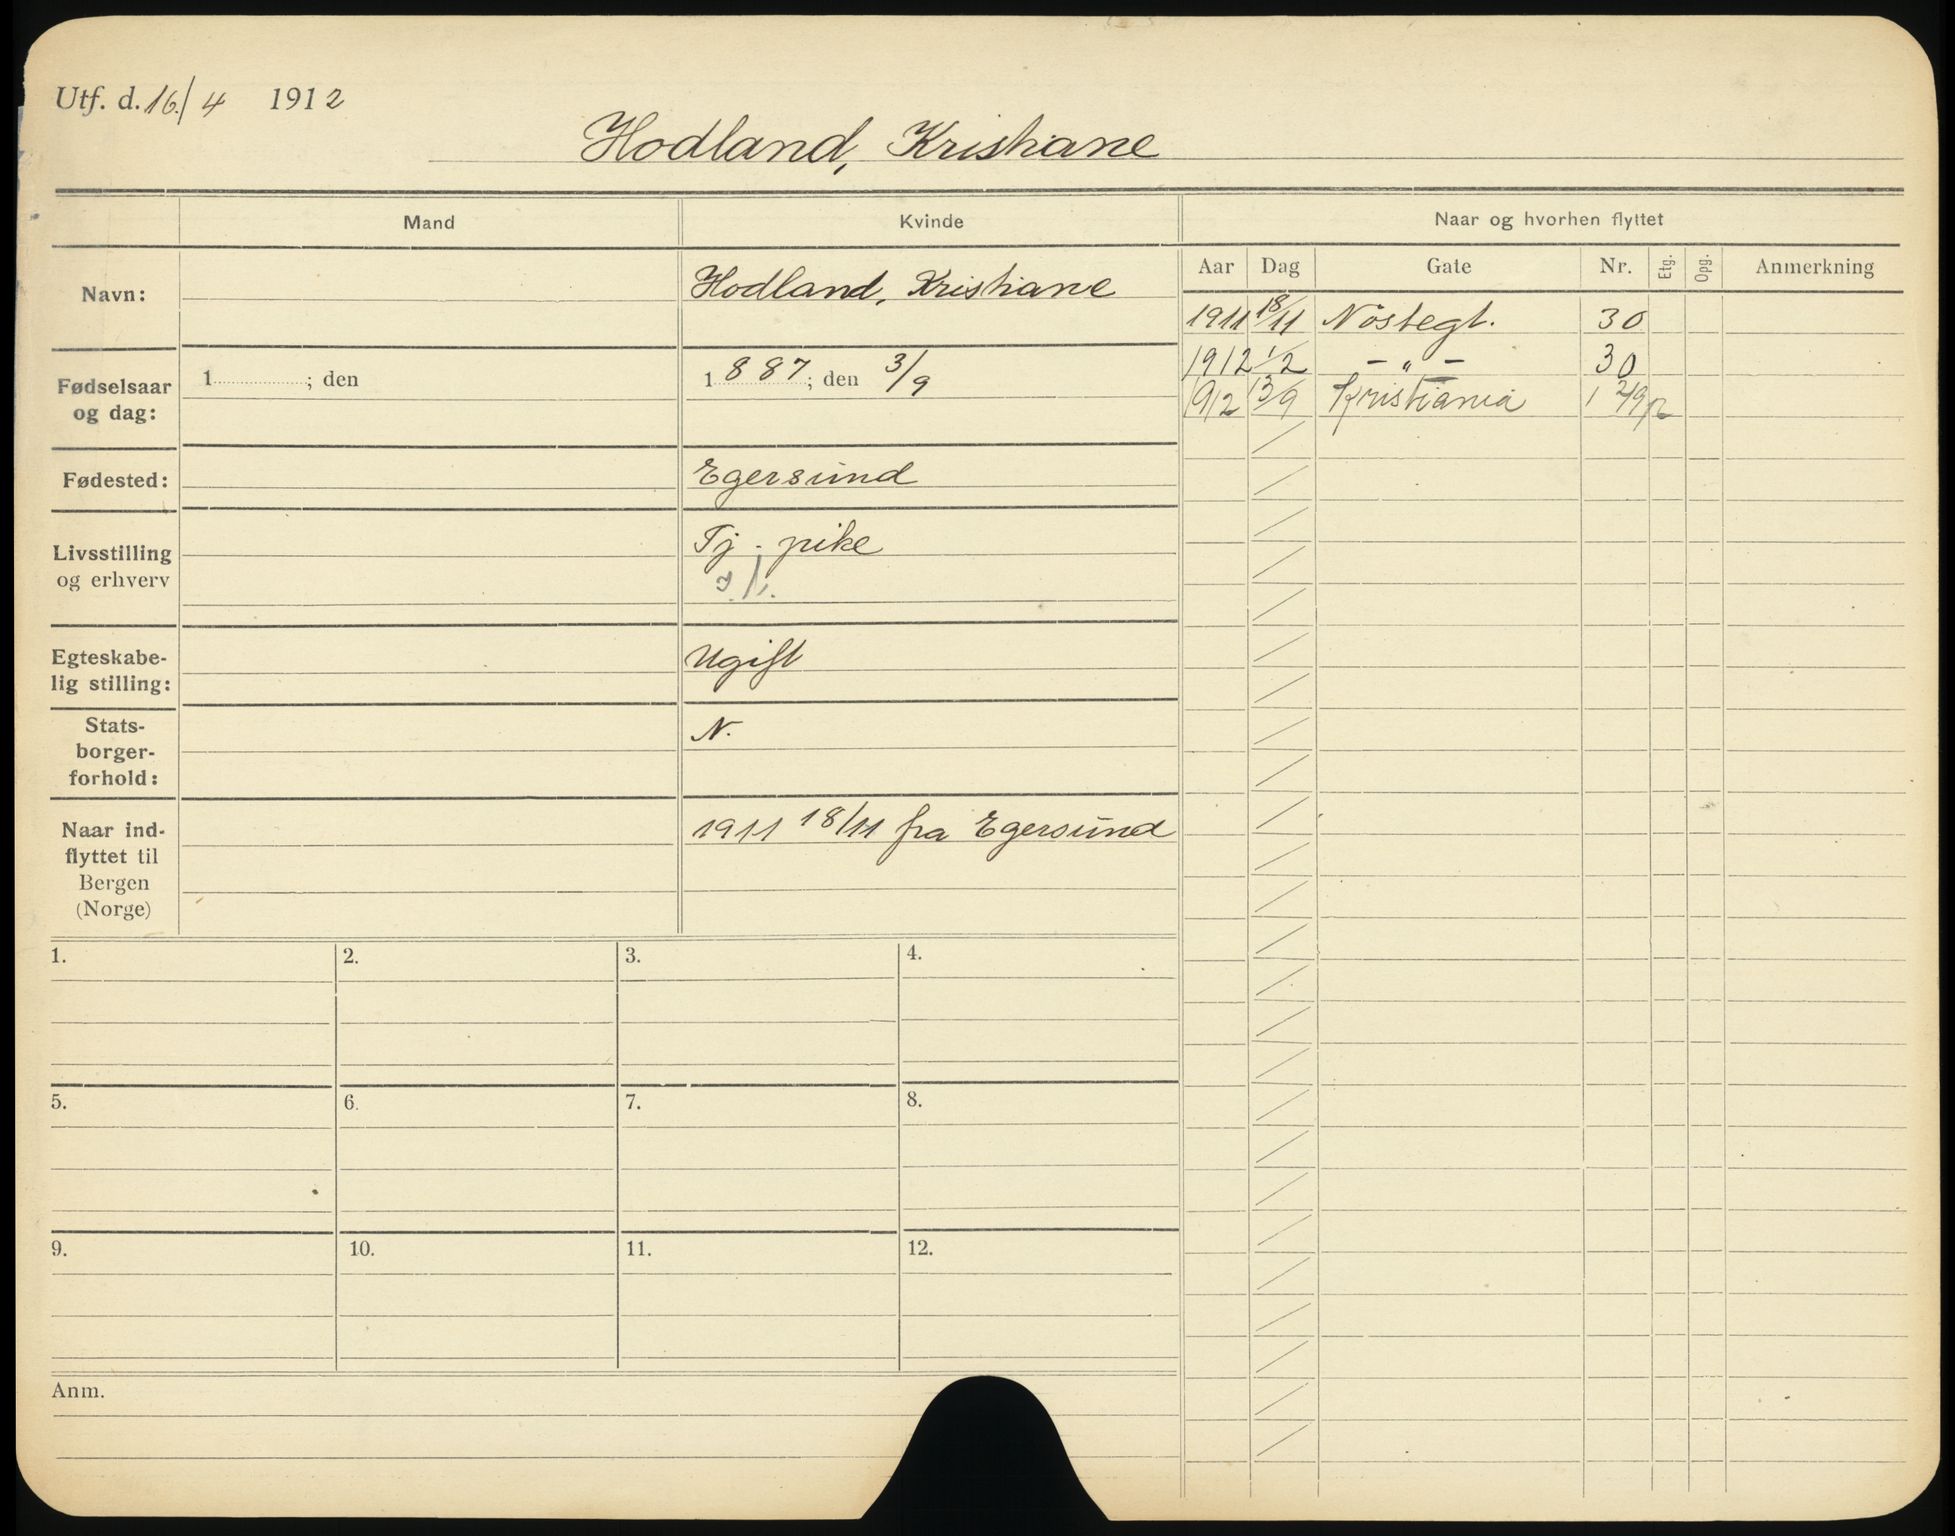 Utf. d. 16./4 1912
Hodland, Kristiane
Mand
Kvinde
Naar og hvorhen flyttet
Navn:
Hodland, Kristiane
Aar Dag Gate Nr. Etg. Opg. Anmerkning
1911 18/11 Nöstegt. 30
1912 1/2 – " – 30
1912 13/9 Kristiania
Fødselsaar
og dag:
1 ; den
1887; den 3/9
Fødested:
Egersund
Livsstilling
og erhverv
Tj. pike
Egteskabe-
lig stilling:
Ugift
Stats-
borger-
forhold:
N.
Naar ind-
flyttet til
Bergen
(Norge)
1911 18/11 fra Egersund
1. 2. 3. 4.
5. 6. 7. 8.
9. 10. 11. 12.
Anm.